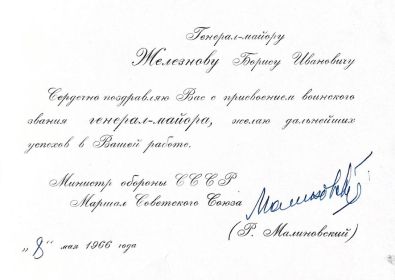 Генерал-майору
Железнову Борису Ивановичу
Сердечно поздравляю Вас с присвоением воинского
звания генерал-майора, желаю дальнейших
успехов в Вашей работе.
Министр обороны СССР
Маршал Советского Союза
Малиновский
(Р. Малиновский)
„8" мая 1966 года